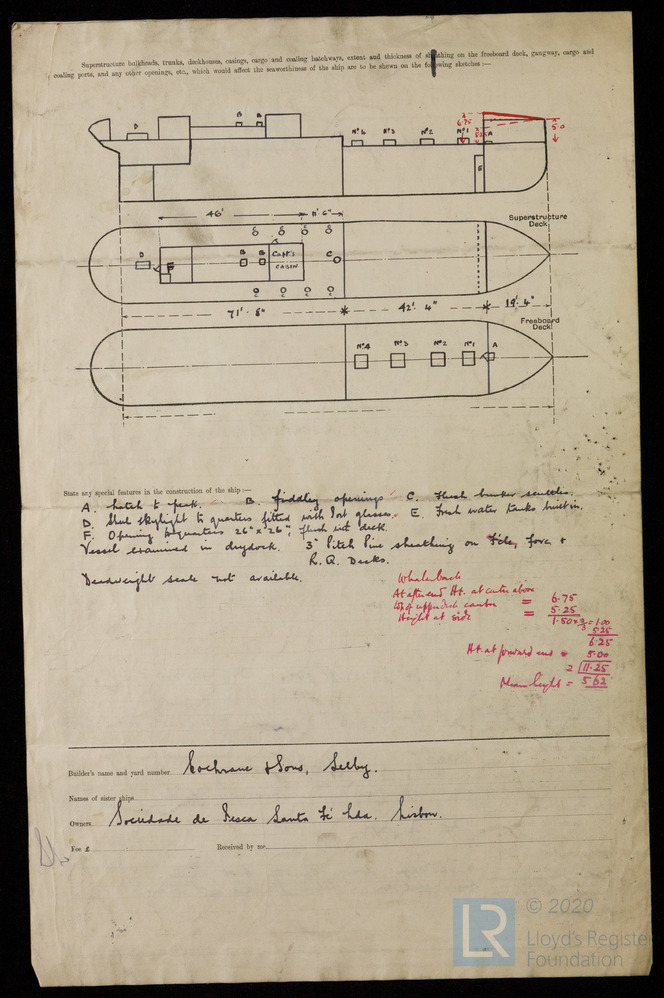 Superstructure bulkheads, trunks, deckhouses, casings, cargo and coaling hatchways, extent and thickness of sheathing on the freeboard deck, gangway, cargo and
coaling ports, and any other openings, etc., which would affect the seaworthiness of the ship are to be shewn on the following sketches :—
D B B Nº3 Nº2 Nº1 A
6.75 5.25 5.0
E
46' 11'. 6"
Superstructure
Deck
D F B B Capt's
CABIN
C
71'. 8" 42'. 4" 19'. 4"
Freeboard
Deck
Nº4 Nº3 Nº2 Nº1 A
State any special features in the construction of the ship :—
A. hatch to peak. B. fiddley openings C. Flush bunker scuttles.
D. Steel skylight to quarters fitted with Port glasses. E. Fresh water tanks built in.
F. Opening to quarters 26" x 26"; flush with deck.
Vessel examined in drydock. 3" Pitch Pine sheathing on F'cle, fore &
R. Q. Decks.
Deadweight scale not available.
Whaleback
At after end Ht. at centre above
upper deck camber = 6.75
Height at side = 5.25
1.50 x 2/3 = 1.00
5.25
6.25
Ht. at forward end = 5.00
2 | 11.25
Mean height = 5.62
Builder's name and yard number Cochrane & Sons, Selby.
Names of sister ships
Owners Sociedade de Pesca Santa Fé Lda. Lisbon.
Fee £ Received by me
LR
© 2020
Lloyd's Register
Foundation